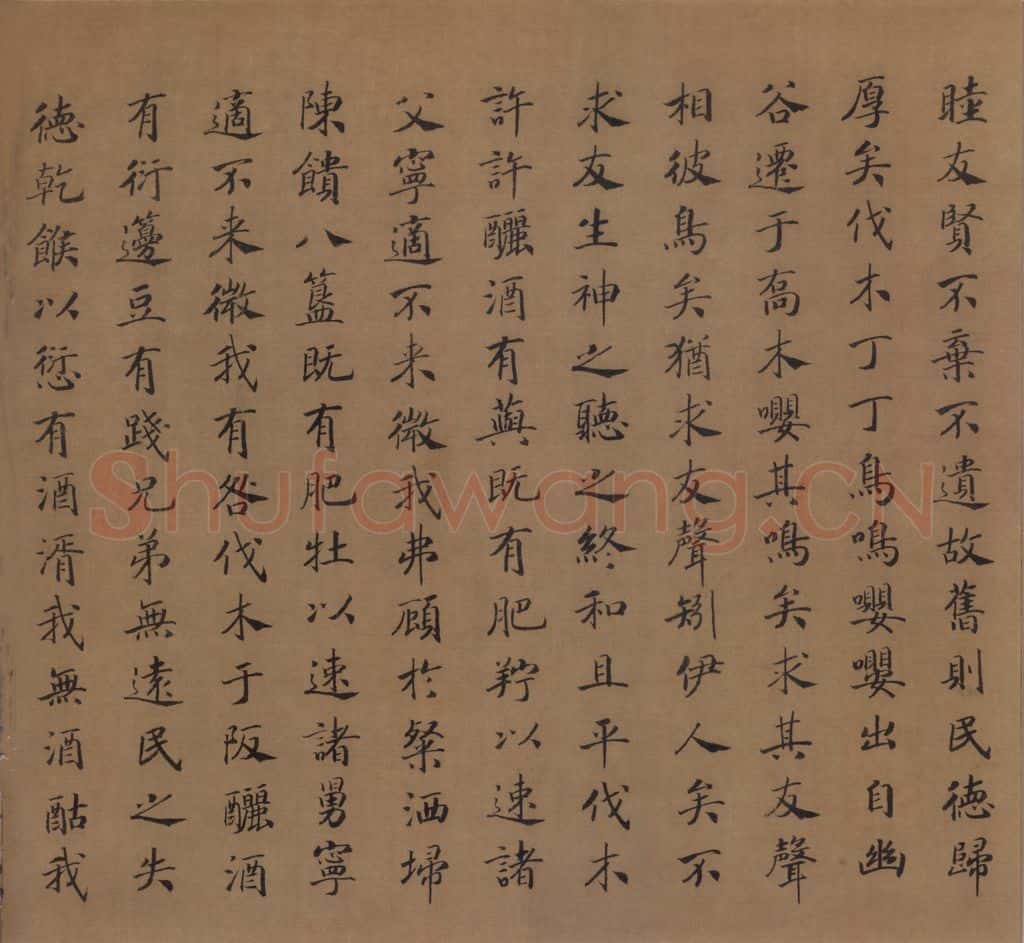 睦友賢不棄不遺故舊則民徳歸
厚矣伐木丁丁鳥鳴嚶嚶出自幽
谷遷于喬木嚶其鳴矣求其友聲
相彼鳥矣猶求友聲矧伊人矣不
求友生神之聽之終和且平伐木
許許釃酒有藇既有肥羜以速諸
父寧適不来微我弗顧於粲洒埽
陳饋八簋既有肥牡以速諸舅寧
適不来微我有咎伐木于阪釃酒
有衍籩豆有踐兄弟無遠民之失
徳乾餱以愆有酒湑我無酒酤我
Shufawang.CN